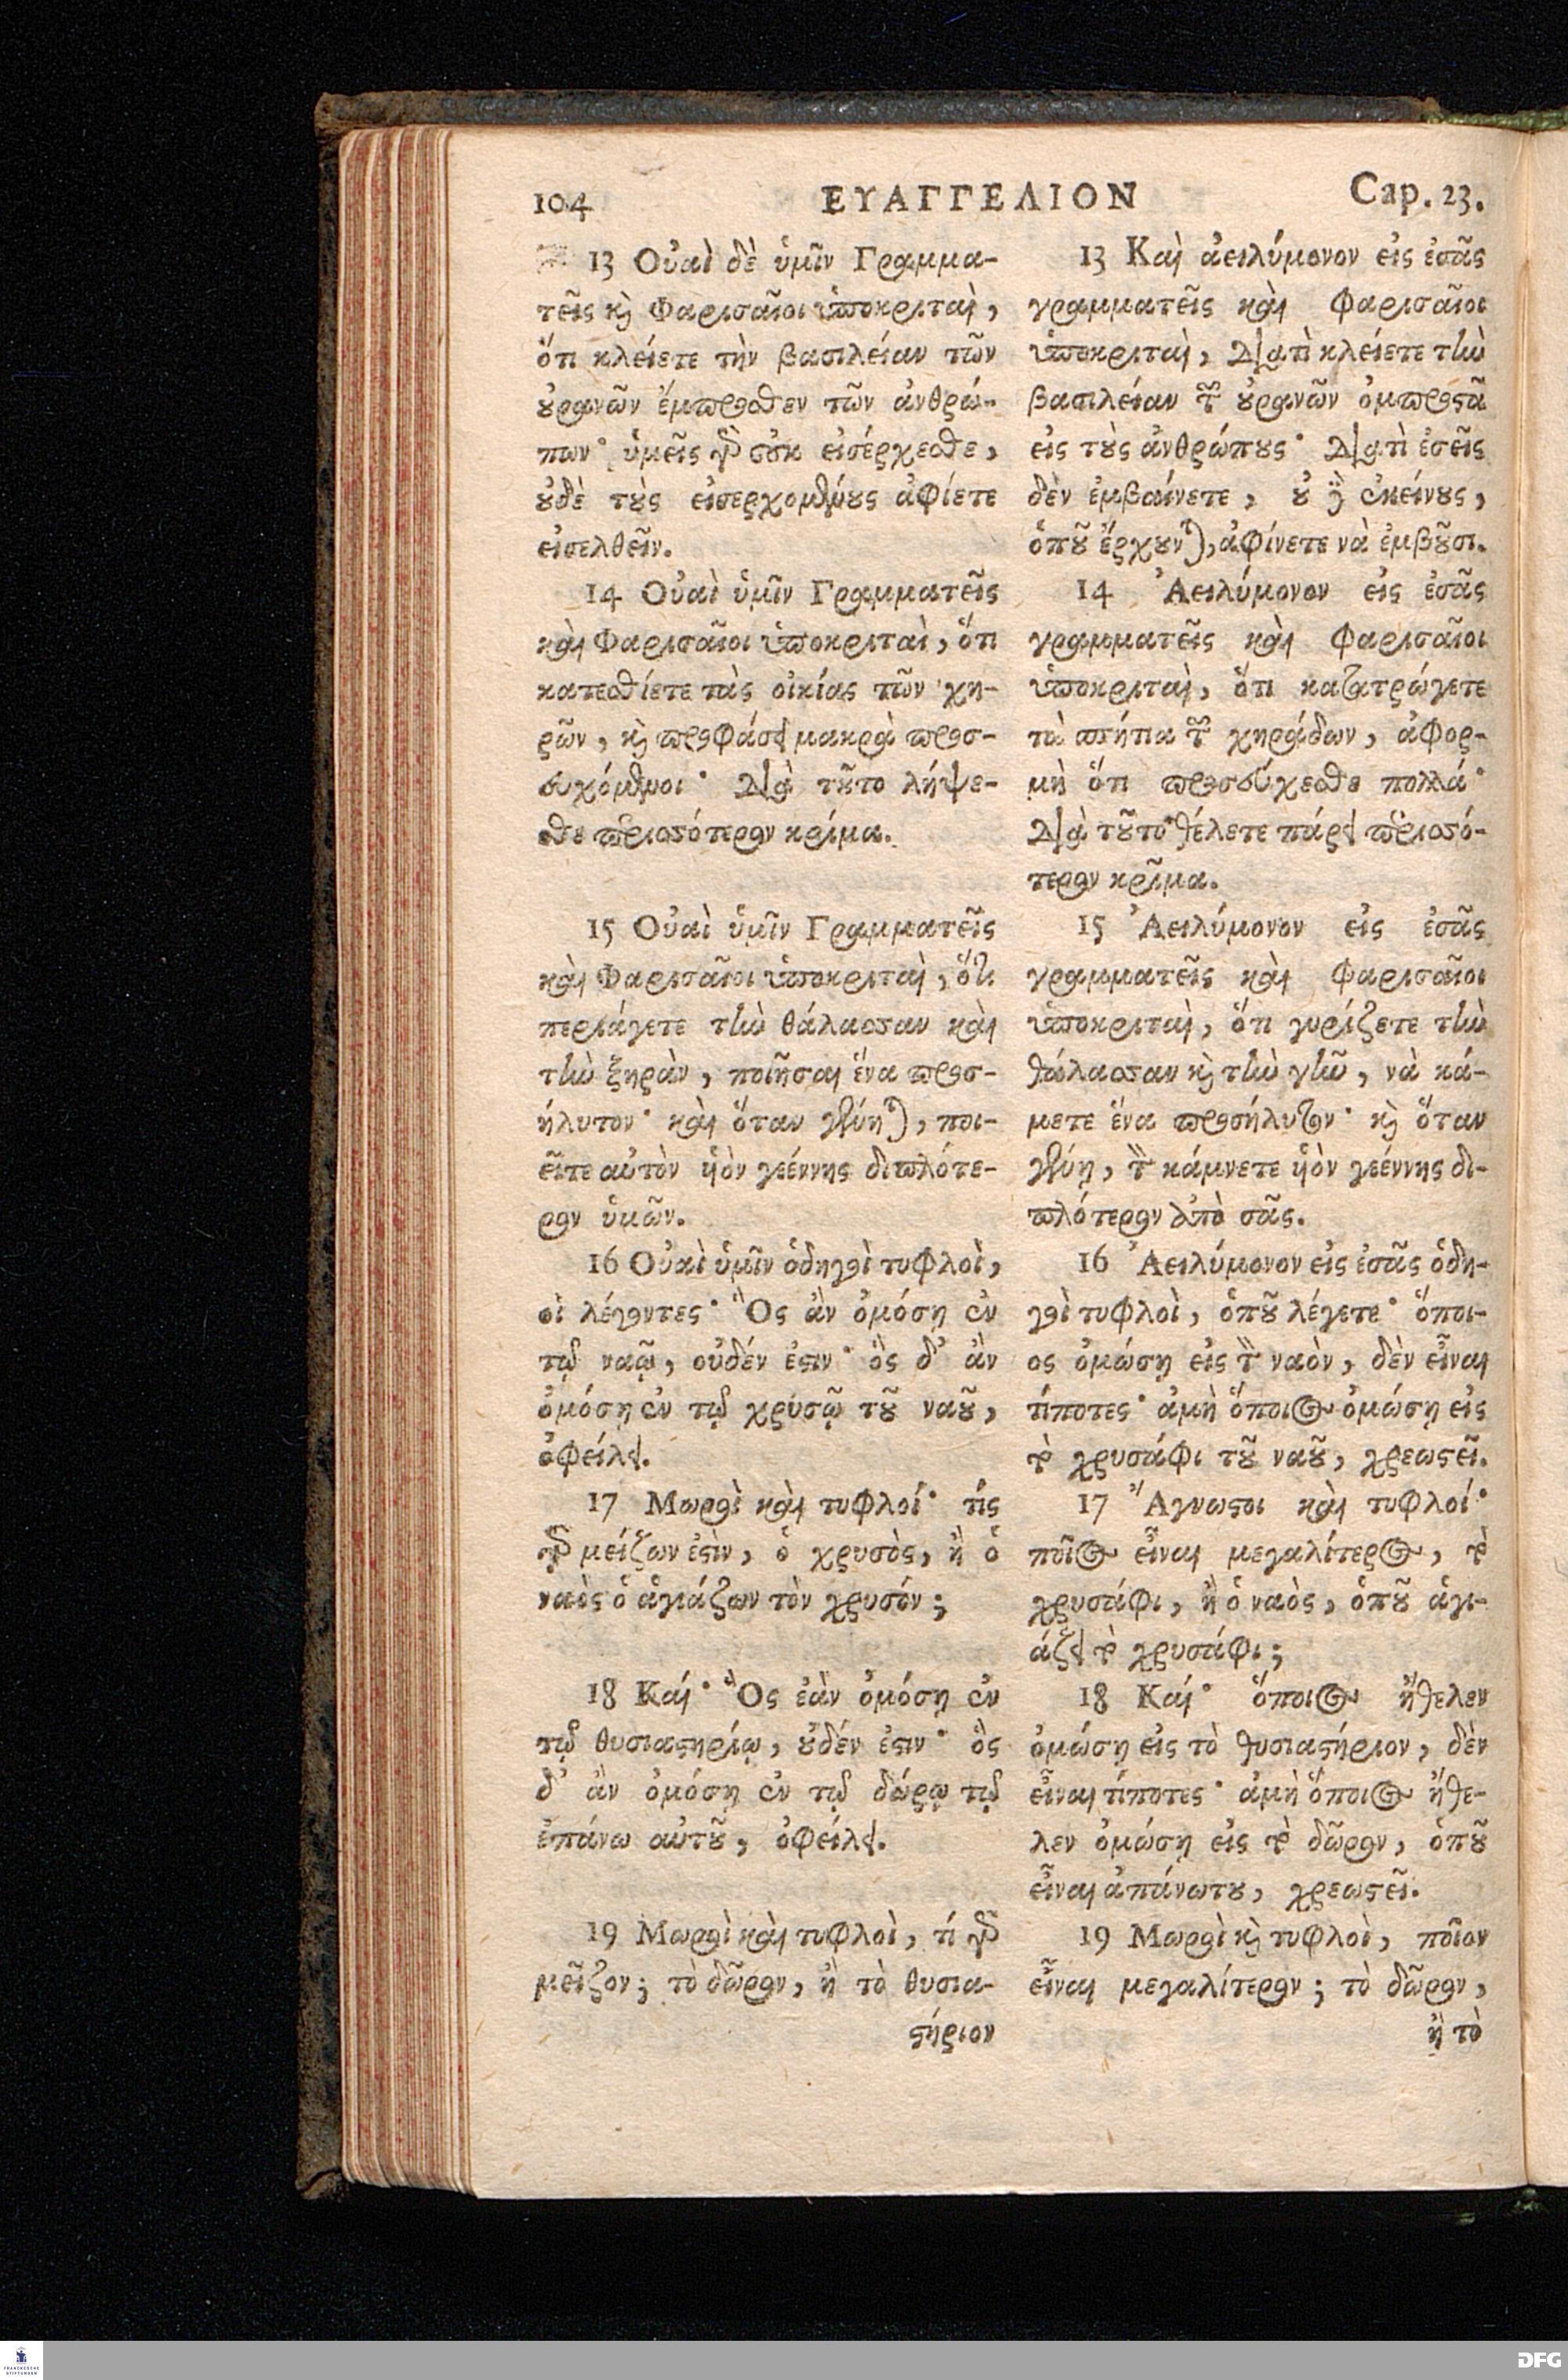 104 ΕΥΑΓΓΕΛΙΟΝ Cap. 23.
13 Οὐαὶ δὲ ὑμῖν Γραμμα-
τεῖς κὶ Φαρισαῖοι ὑποκριταὶ,
ὅτι κλείετε τὴν βασιλείαν τῶν
ȣ̓ρανῶν ἔμπροσθεν τῶν ἀνθρώ-
πων· ὑμεῖς γὸ οὐκ εἰσέρχεσθε,
ȣ̓δὲ τȣ̀ς εἰσερχομένȣς ἀφίετε
εἰσελθεῖν.
14 Οὐαὶ ὑμῖν Γραμματεῖς
καὶ Φαρισαῖοι ὑποκριταὶ, ὅτι
κατεσθίετε τὰς οἰκίας τῶν χη-
ρῶν, κὶ προφάσει μακρὰ προσ-
ευχόμενοι· Διὰ τȣ͂το λήψε-
σθε περισσότερον κρίμα.
15 Οὐαὶ ὑμῖν Γραμματεῖς
καὶ Φαρισαῖοι ὑποκριταὶ, ὅτι
περιάγετε τὴν θάλασσαν καὶ
τὴν ξηρὰν, ποιῆσαι ἕνα προσ-
ήλυτον· καὶ ὅταν γένηται, ποι-
εῖτε αὐτὸν ὑὸν γεέννης διπλότε-
ρον ὑμῶν.
16 Οὐαὶ ὑμῖν ὁδηγοὶ τυφλοὶ,
οἱ λέγοντες· Ὃς ἂν ὀμόσῃ ἐν
τῷ ναῷ, οὐδέν ἐϛιν· ὃς δ' ἂν
ὀμόσῃ ἐν τῷ χρυσῷ τȣ͂ ναȣ͂,
ὀφείλει.
17 Μωροὶ καὶ τυφλοί· τίς
γὸ μείζων ἐϛὶν, ὁ χρυσὸς, ἢ ὁ
ναὸς ὁ ἁγιάζων τὸν χρυσόν;
18 Καί· Ὃς ἐὰν ὀμόσῃ ἐν
τῷ θυσιαϛηρίῳ, ȣ̓δέν ἐϛιν· ὃς
δ' ἂν ὀμόσῃ ἐν τῷ δώρῳ τῷ
ἐπάνω αὐτȣ͂, ὀφείλει.
19 Μωροὶ καὶ τυφλοὶ, τί γὸ
μεῖζον; τὸ δῶρον, ἢ τὸ θυσια-
ϛήριον
13 Καὶ ἀειλύμονον εἰς ἐσᾶς
γραμματεῖς καὶ Φαρισαῖοι
ὑποκριταὶ, Διατὶ κλείετε τὴν
βασιλείαν τῶν ȣ̓ρανῶν ὀμπροϛὰ
εἰς τȣ̀ς ἀνθρώπȣς· Διατὶ ἐσεῖς
δὲν ἐμβαίνετε, ȣ̓δὲ ἐκείνȣς,
ὁπȣ͂ ἔρχȣνται, ἀφίνετε νὰ ἐμβȣ͂σι.
14 Ἀειλύμονον εἰς ἐσᾶς
γραμματεῖς καὶ Φαρισαῖοι
ὑποκριταὶ, ὅτι κατατρώγετε
τὰ σπήτια τῶν χηράδων, ἀφορ-
μὴ ὅτι προσεύχεσθε πολλά·
Διὰ τȣ͂το θέλετε πάρει περισσό-
τερον κρῖμα.
15 Ἀειλύμονον εἰς ἐσᾶς
γραμματεῖς καὶ Φαρισαῖοι
ὑποκριταὶ, ὅτι γυρίζετε τὴν
θάλασσαν κὶ τὴν γῆν, νὰ κά-
μετε ἕνα προσήλυτον· κὶ ὅταν
γένῃ, τὸν κάμνετε ὑὸν γεέννης δι-
πλότερον ἀπὸ σᾶς.
16 Ἀειλύμονον εἰς ἐσᾶς ὁδη-
γοὶ τυφλοὶ, ὁπȣ͂ λέγετε· ὅποι-
ος ὀμώσῃ εἰς τὸν ναὸν, δὲν εἶναι
τίποτες· ἀμὴ ὅποιος ὀμώσῃ εἰς
τὸ χρυσάφι τȣ͂ ναȣ͂, χρεωϛεῖ.
17 Ἄγνωϛοι καὶ τυφλοί·
ποῖος εἶναι μεγαλίτερος, τὸ
χρυσάφι, ἢ ὁ ναὸς, ὁπȣ͂ ἁγι-
άζει τὸ χρυσάφι;
18 Καί· ὅποιος ἤθελεν
ὀμώσῃ εἰς τὸ θυσιαϛήριον, δὲν
εἶναι τίποτες· ἀμὴ ὅποιος ἤθε-
λεν ὀμώσῃ εἰς τὸ δῶρον, ὁπȣ͂
εἶναι ἀπάνωτȣ, χρεωϛεῖ.
19 Μωροὶ κὶ τυφλοὶ, ποῖον
εἶναι μεγαλίτερον; τὸ δῶρον,
ἢ τὸ
FRANCKESCHE STIFTUNGEN
DFG